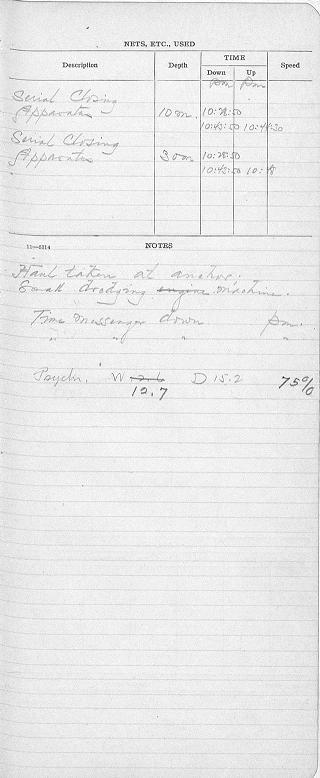 NETS, ETC., USED
Description Depth TIME Speed
Down Up
pm pm
Serial Closing
Apparatus 10 m. 10:28:50
10:43:50 10:44:30
Serial Closing
Apparatus 30 m 10:28:50
10:43:50 10:48
11—5214 NOTES
Haul taken at anchor.
Small dredging engine machine.
Time messenger down pm.
" " " "
Psychr. W D 15.2 75%
12.7